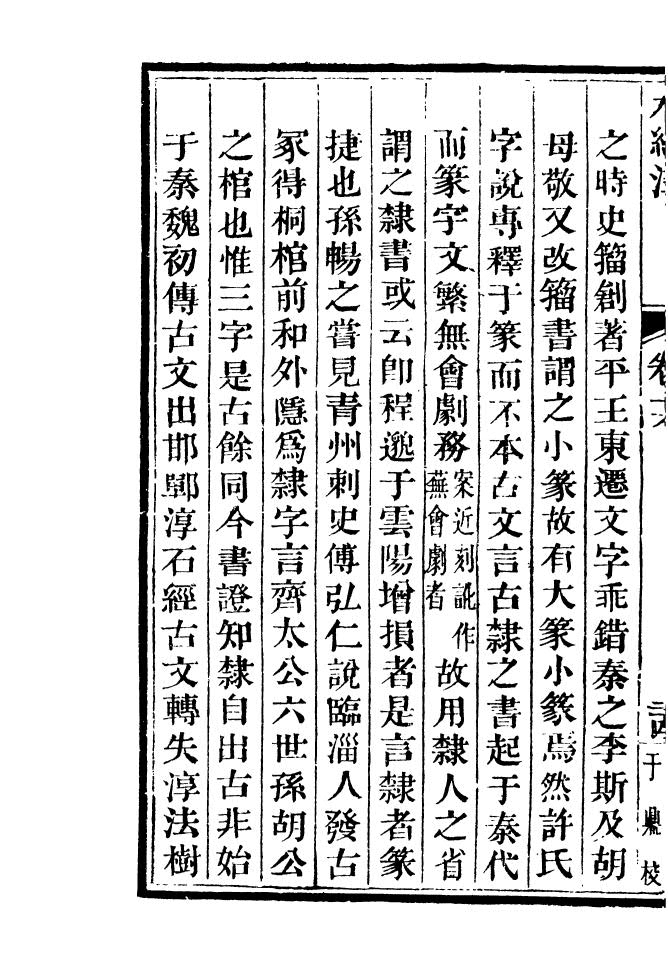 水經注
卷十六
二古
于鼎校
之時史籀創著平王東遷文字乖錯秦之李斯及胡
母敬又改籀書謂之小篆故有大篆小篆焉然許氏
字說專釋于篆而不本古文言古隸之書起于秦代
而篆字文繁無會劇務案近刻訛作蕪會劇者故用隸人之省
謂之隸書或云卽程邈于雲陽增損者是言隸者篆
捷也孫暢之嘗見青州刺史傅弘仁說臨淄人發古
冢得桐棺前和外隱為隸字言齊太公六世孫胡公
之棺也惟三字是古餘同今書證知隸自出古非始
于秦魏初傳古文出邯鄲淳石經古文轉失淳法樹